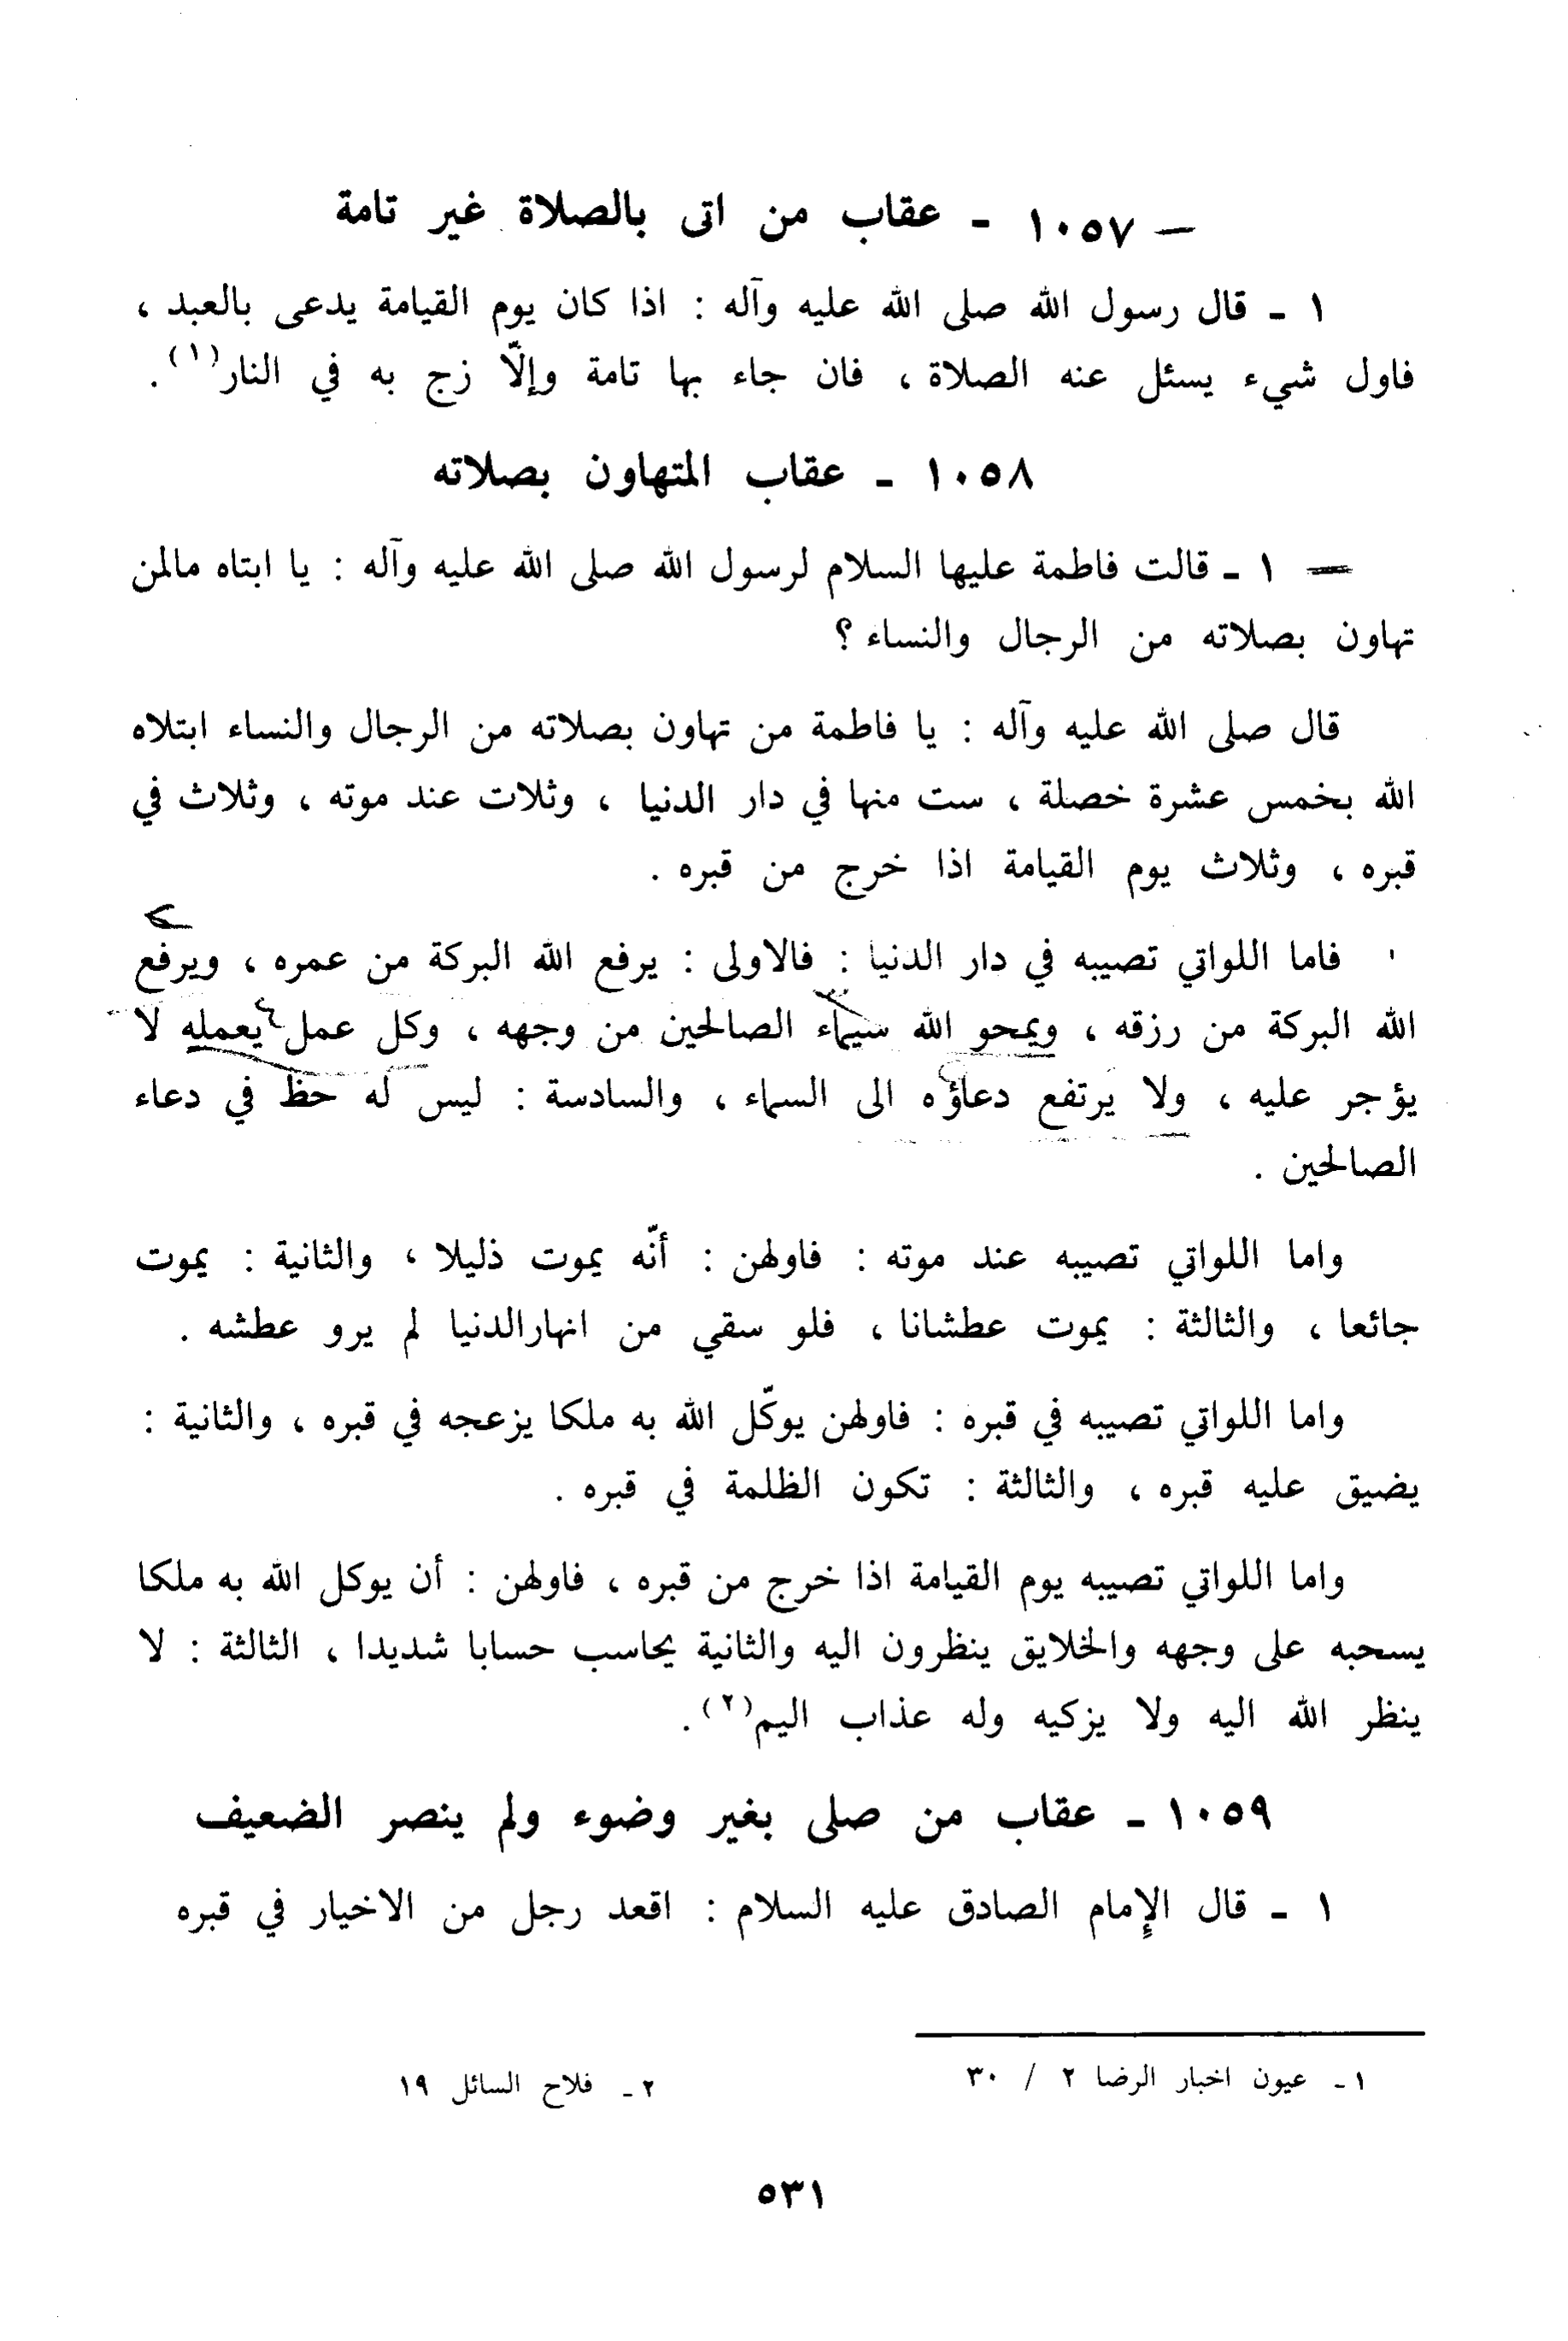 ١٠٥٧ - عقاب من اتى بالصلاة غير تامة
١ - قال رسول الله صلى الله عليه وآله : اذا كان يوم القيامة يدعى بالعبد ،
فاول شيء يسئل عنه الصلاة ، فان جاء بها تامة وإلّا زج به في النار(١) .
١٠٥٨ - عقاب المتهاون بصلاته
١ - قالت فاطمة عليها السلام لرسول الله صلى الله عليه وآله : يا ابتاه مالمن
تهاون بصلاته من الرجال والنساء ؟
قال صلى الله عليه وآله : يا فاطمة من تهاون بصلاته من الرجال والنساء ابتلاه
الله بخمس عشرة خصلة ، ست منها في دار الدنيا ، وثلات عند موته ، وثلاث في
قبره ، وثلاث يوم القيامة اذا خرج من قبره .
فاما اللواتي تصيبه في دار الدنيا : فالاولى : يرفع الله البركة من عمره ، ويرفع
الله البركة من رزقه ، ويمحو الله سيماء الصالحين من وجهه ، وكل عمل يعمله لا
يؤجر عليه ، ولا يرتفع دعاؤه الى السماء ، والسادسة : ليس له حظ في دعاء
الصالحين .
واما اللواتي تصيبه عند موته : فاولهن : أنّه يموت ذليلا ، والثانية : يموت
جائعا ، والثالثة : يموت عطشانا ، فلو سقي من انهارالدنيا لم يرو عطشه .
واما اللواتي تصيبه في قبره : فاولهن يوكّل الله به ملكا يزعجه في قبره ، والثانية :
يضيق عليه قبره ، والثالثة : تكون الظلمة في قبره .
واما اللواتي تصيبه يوم القيامة اذا خرج من قبره ، فاولهن : أن يوكل الله به ملكا
يسحبه على وجهه والخلايق ينظرون اليه والثانية يحاسب حسابا شديدا ، الثالثة : لا
ينظر الله اليه ولا يزكيه وله عذاب اليم(٢) .
١٠٥٩ - عقاب من صلى بغير وضوء ولم ينصر الضعيف
١ - قال الإمام الصادق عليه السلام : اقعد رجل من الاخيار في قبره
١ - عيون اخبار الرضا ٢ / ٣٠
٢ - فلاح السائل ١٩
٥٣١